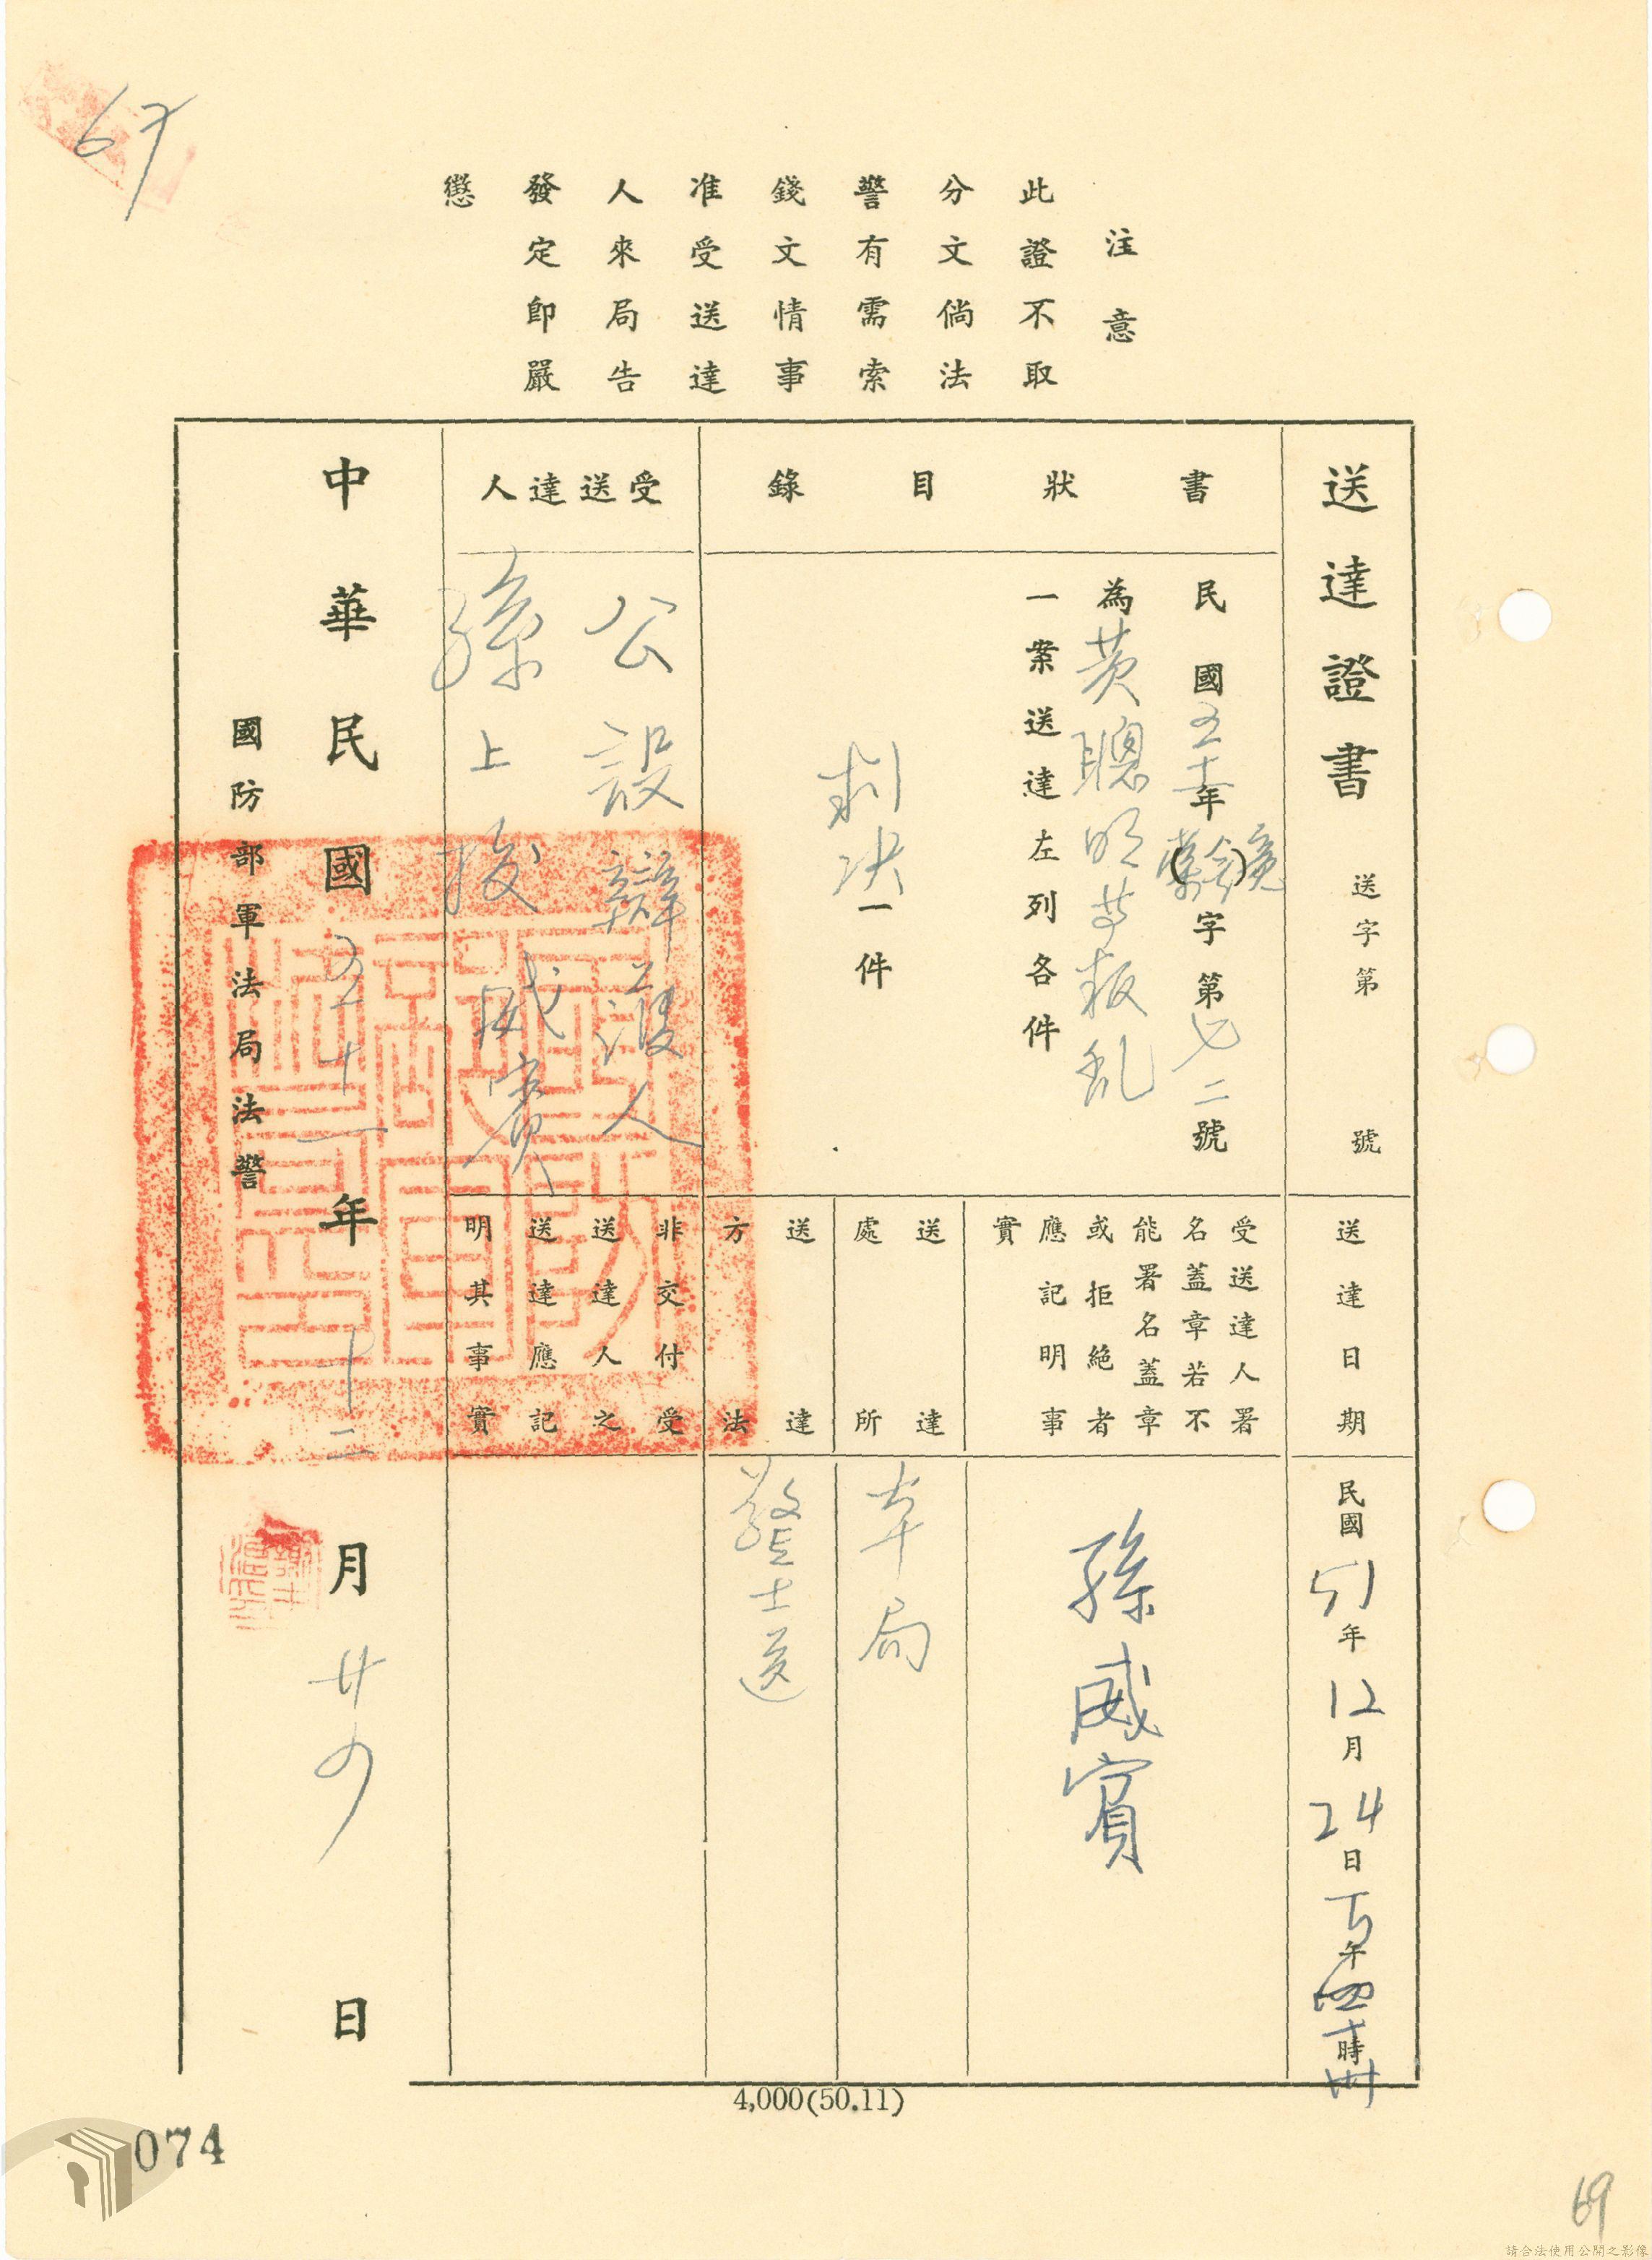 67
注意
此證不取
分文倘法
警有需索
錢文情事
准受送達
人來局告
發定即嚴
懲
送達證書 送字第 號
書狀目錄
民國五十年字第七二號
為黃聰明等叛乱
一案送達左列各件
判决一件
受送達人
公設辯護人
孫上校威賓
送達日期
民國51年12月24日下午四時卅
受送達人署
名蓋章若不
能署名蓋章
或拒絕者
應記明事
實
孫威賓
送達
處所
本局
送達
方法
警士送
非交付受
送達人之
送達應記
明其事實
中華民國五十一年十二月廿四日
國防部軍法局法警
4,000(50.11)
074
69
請合法使用公開之影像